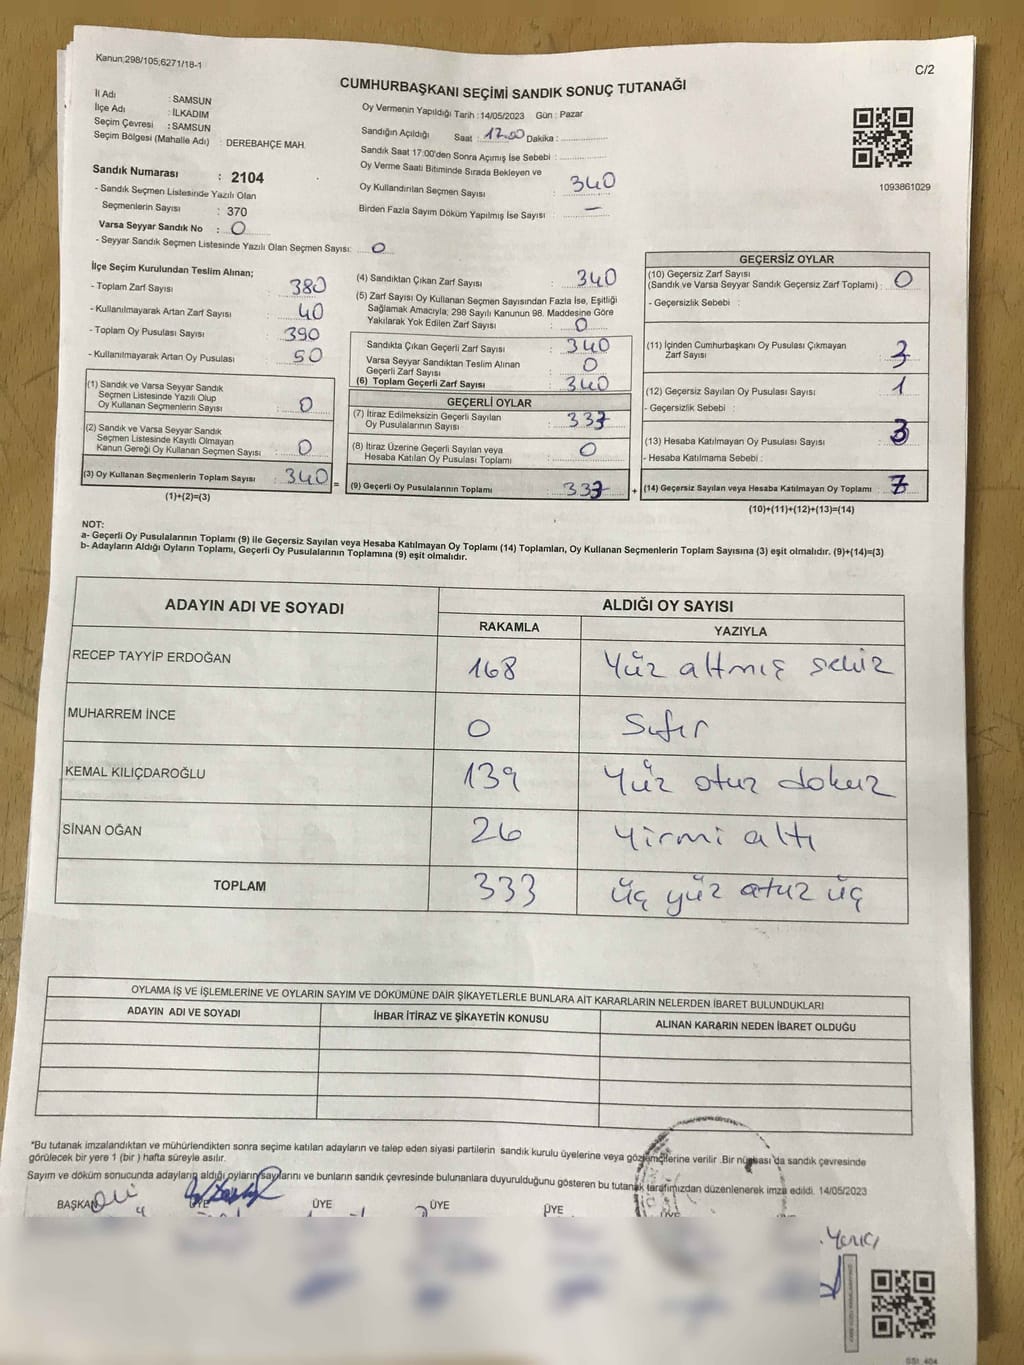 Kanun;298/105;6271/18-1
C/2
CUMHURBAŞKANI SEÇİMİ SANDIK SONUÇ TUTANAĞI
İl Adı : SAMSUN
İlçe Adı : İLKADIM
Seçim Çevresi : SAMSUN
Seçim Bölgesi (Mahalle Adı) : DEREBAHÇE MAH.
Sandık Numarası : 2104
- Sandık Seçmen Listesinde Yazılı Olan
Seçmenlerin Sayısı : 370
Varsa Seyyar Sandık No : 0
- Seyyar Sandık Seçmen Listesinde Yazılı Olan Seçmen Sayısı: 0
Oy Vermenin Yapıldığı Tarih :14/05/2023 Gün : Pazar
Sandığın Açıldığı Saat : 17.00 Dakika :
Sandık Saat 17:00'den Sonra Açımış İse Sebebi :
Oy Verme Saati Bitiminde Sırada Bekleyen ve
Oy Kullandırılan Seçmen Sayısı : 340
Birden Fazla Sayım Döküm Yapılmış İse Sayısı : —
1093861029
İlçe Seçim Kurulundan Teslim Alınan;
- Toplam Zarf Sayısı : 380
- Kullanılmayarak Artan Zarf Sayısı : 40
- Toplam Oy Pusulası Sayısı : 390
- Kullanılmayarak Artan Oy Pusulası : 50
(1) Sandık ve Varsa Seyyar Sandık
Seçmen Listesinde Yazılı Olup
Oy Kullanan Seçmenlerin Sayısı : 0
(2) Sandık ve Varsa Seyyar Sandık
Seçmen Listesinde Kayıtlı Olmayan
Kanun Gereği Oy Kullanan Seçmen Sayısı : 0
(3) Oy Kullanan Seçmenlerin Toplam Sayısı : 340
(1)+(2)=(3)
(4) Sandıktan Çıkan Zarf Sayısı : 340
(5) Zarf Sayısı Oy Kullanan Seçmen Sayısından Fazla İse, Eşitliği
Sağlamak Amacıyla; 298 Sayılı Kanunun 98. Maddesine Göre
Yakılarak Yok Edilen Zarf Sayısı : 0
Sandıkta Çıkan Geçerli Zarf Sayısı : 340
Varsa Seyyar Sandıktan Teslim Alınan
Geçerli Zarf Sayısı : 0
(6) Toplam Geçerli Zarf Sayısı : 340
GEÇERLİ OYLAR
(7) İtiraz Edilmeksizin Geçerli Sayılan
Oy Pusulalarının Sayısı : 333
(8) İtiraz Üzerine Geçerli Sayılan veya
Hesaba Katılan Oy Pusulası Toplamı : 0
= (9) Geçerli Oy Pusulalarının Toplamı : 333 +
GEÇERSİZ OYLAR
(10) Geçersiz Zarf Sayısı
(Sandık ve Varsa Seyyar Sandık Geçersiz Zarf Toplamı) : 0
- Geçersizlik Sebebi :
(11) İçinden Cumhurbaşkanı Oy Pusulası Çıkmayan
Zarf Sayısı : 3
(12) Geçersiz Sayılan Oy Pusulası Sayısı : 1
- Geçersizlik Sebebi :
(13) Hesaba Katılmayan Oy Pusulası Sayısı : 3
- Hesaba Katılmama Sebebi :
(14) Geçersiz Sayılan veya Hesaba Katılmayan Oy Toplamı : 7
(10)+(11)+(12)+(13)=(14)
NOT:
a- Geçerli Oy Pusulalarının Toplamı (9) ile Geçersiz Sayılan veya Hesaba Katılmayan Oy Toplamı (14) Toplamları, Oy Kullanan Seçmenlerin Toplam Sayısına (3) eşit olmalıdır. (9)+(14)=(3)
b- Adayların Aldığı Oyların Toplamı, Geçerli Oy Pusulalarının Toplamına (9) eşit olmalıdır.
ADAYIN ADI VE SOYADI
ALDIĞI OY SAYISI
RAKAMLA YAZIYLA
RECEP TAYYİP ERDOĞAN 168 Yüz altmış sekiz
MUHARREM İNCE 0 Sıfır
KEMAL KILIÇDAROĞLU 139 Yüz otuz dokuz
SİNAN OĞAN 26 Yirmi altı
TOPLAM 333 üç yüz otuz üç
OYLAMA İŞ VE İŞLEMLERİNE VE OYLARIN SAYIM VE DÖKÜMÜNE DAİR ŞİKAYETLERLE BUNLARA AİT KARARLARIN NELERDEN İBARET BULUNDUKLARI
ADAYIN ADI VE SOYADI İHBAR İTİRAZ VE ŞİKAYETİN KONUSU ALINAN KARARIN NEDEN İBARET OLDUĞU
*Bu tutanak imzalandıktan ve mühürlendikten sonra seçime katılan adayların ve talep eden siyasi partilerin sandık kurulu üyelerine veya gözlemcilerine verilir .Bir nüshası da sandık çevresinde
görülecek bir yere 1 (bir ) hafta süreyle asılır.
Sayım ve döküm sonucunda adayların aldığı oyların sayılarını ve bunların sandık çevresinde bulunanlara duyurulduğunu gösteren bu tutanak tarafımızdan düzenlenerek imza edildi. 14/05/2023
BAŞKAN ÜYE ÜYE ÜYE ÜYE ÜYE